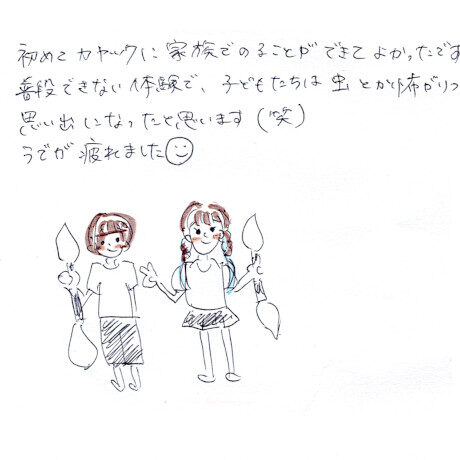 初めてカヤックに家族でのることができてよかったです
普段できない体験で、子どもたちは虫とか怖がりつ
思い出になったと思います(笑)
うでが疲れました